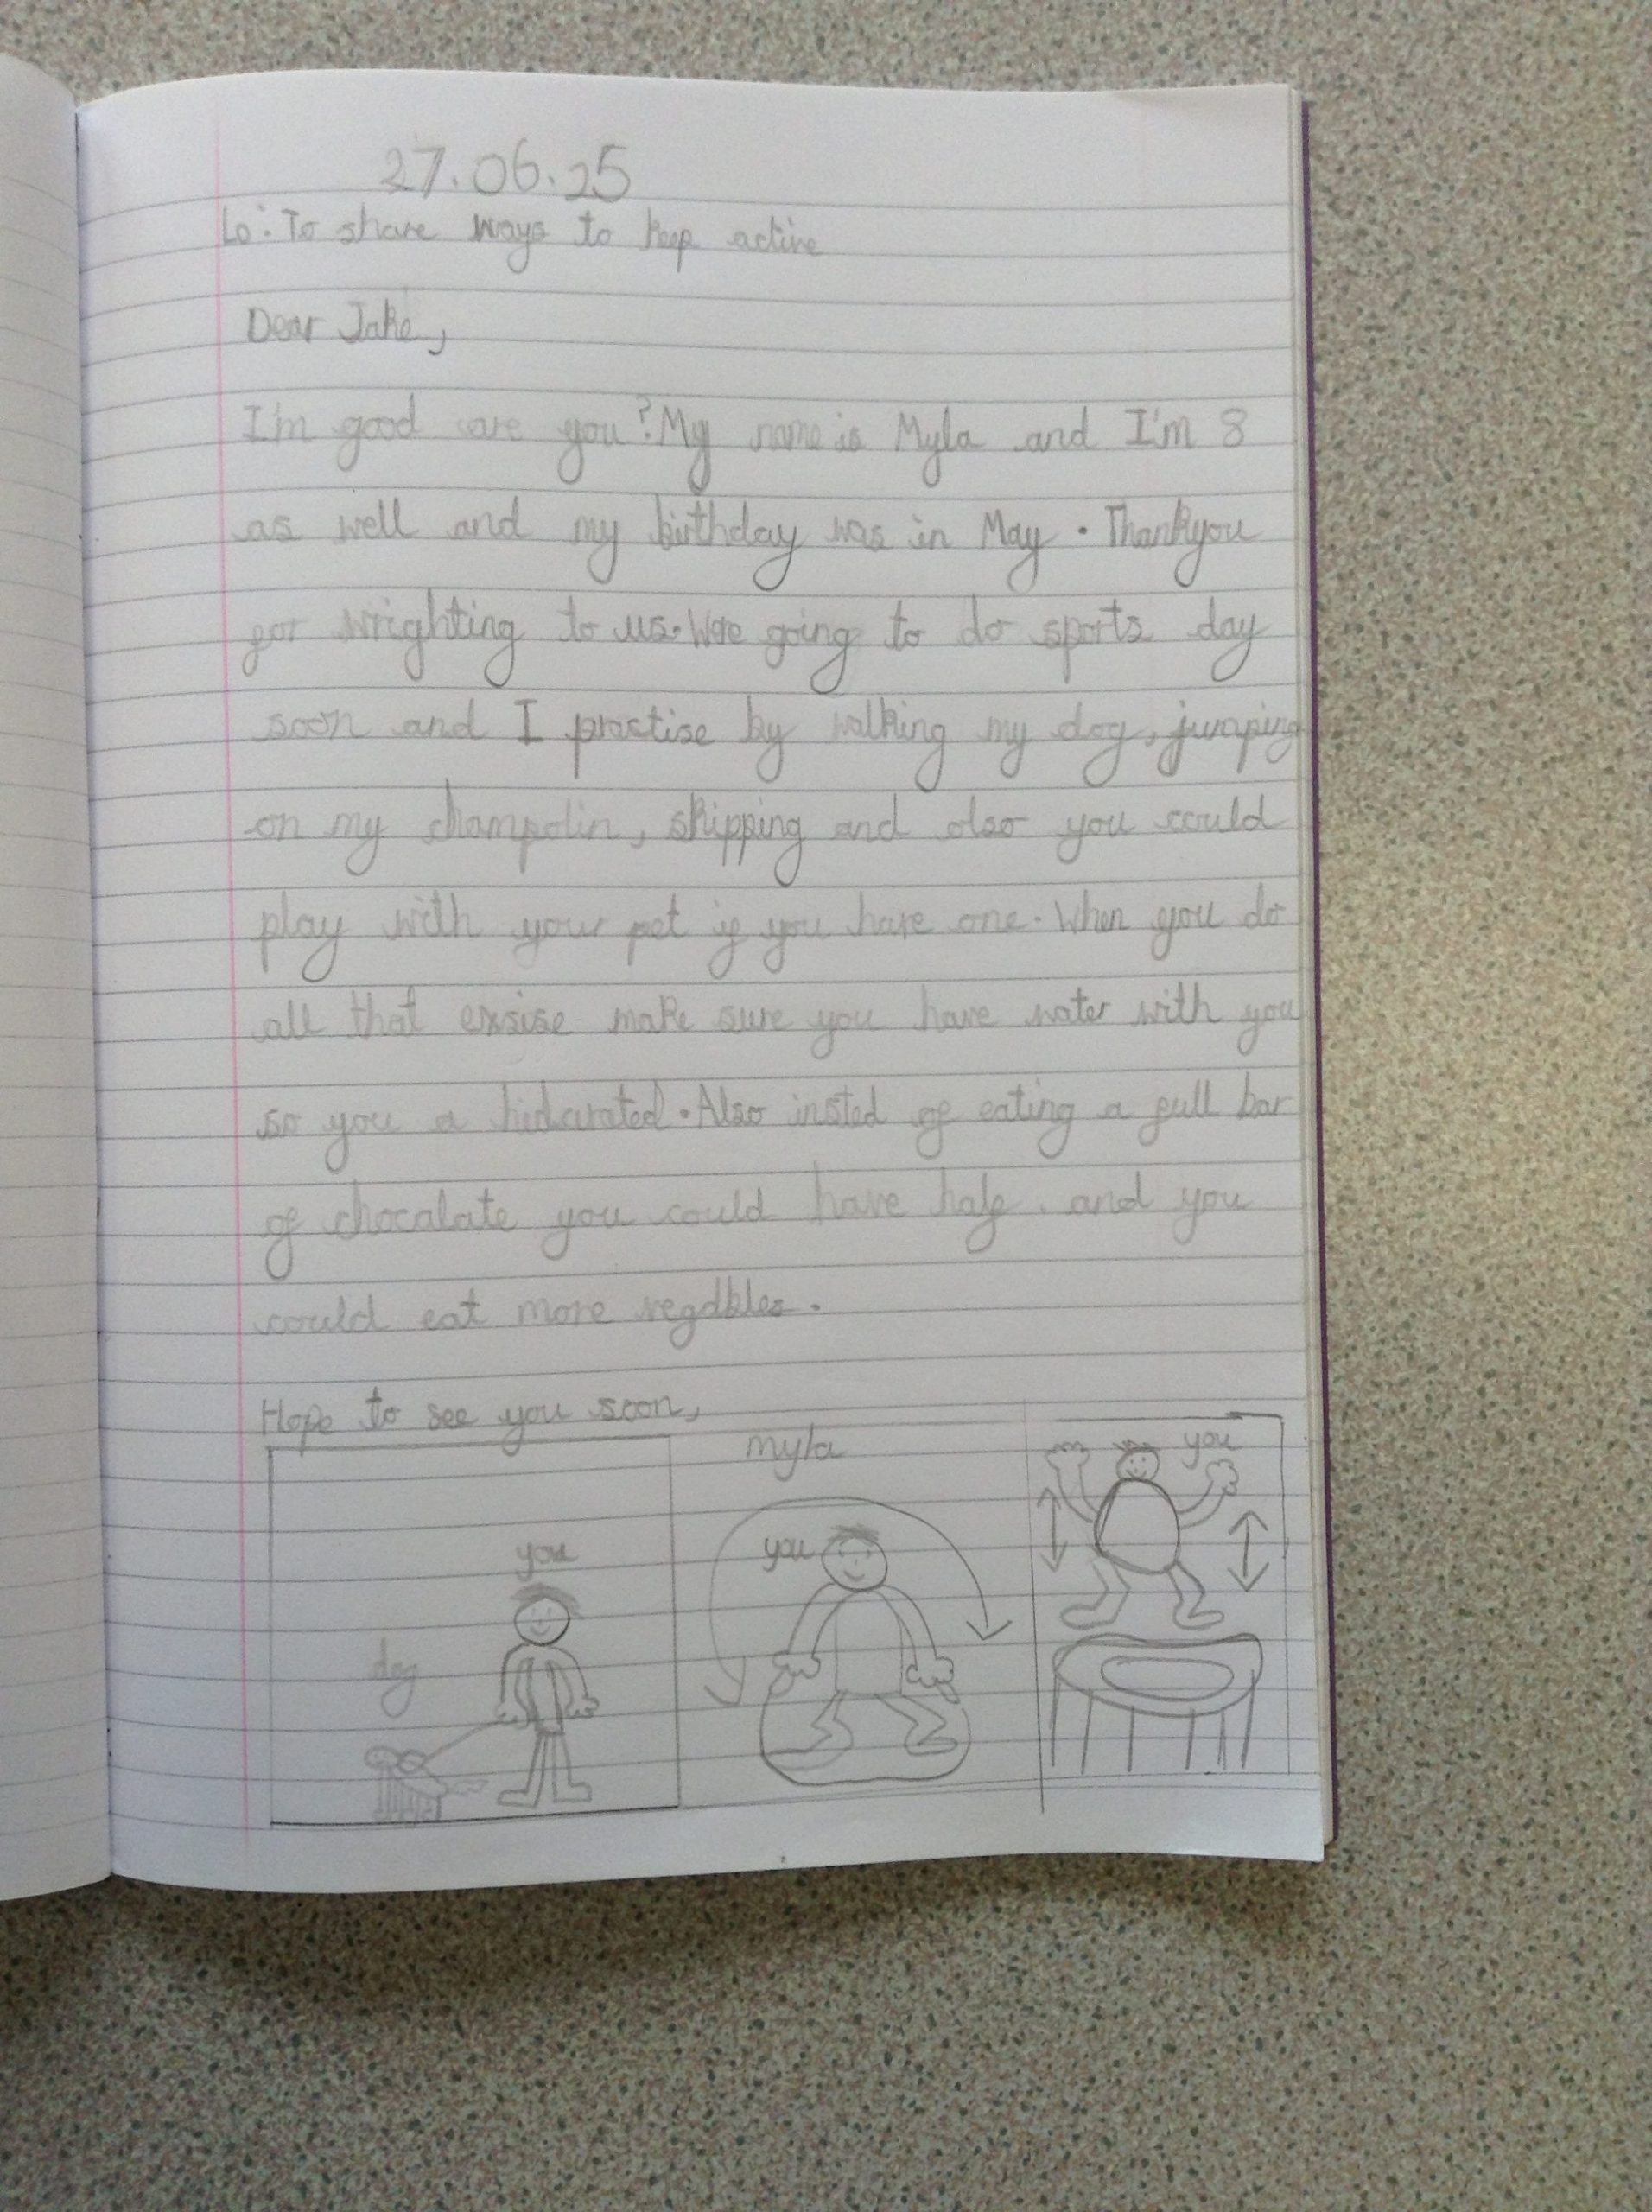 27.06.25
Lo: To share ways to keep active
Dear Jake,
I'm good are you? My name is Myla and I'm 8
as well and my birthday was in May. Thankyou
for wrighting to us. Wre going to do sports day
soon and I practise by walking my dog, jumping
on my champolin, skipping and also you could
play with your pet if you have one. When you do
all that exsise make sure you have water with you
so you a hidurated. Also insted of eating a full bar
of chocalate you could have half. and you
could eat more vegdbles.
Hope to see you soon,
myla
you
dog
you
you